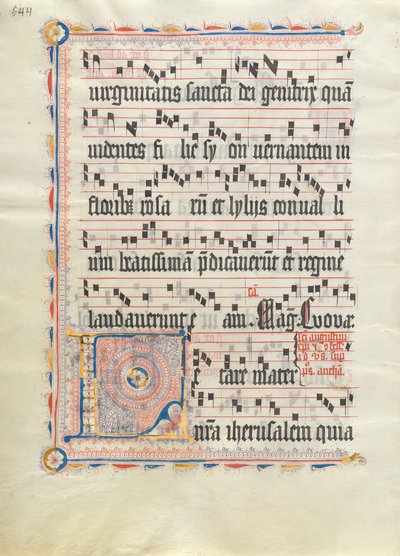 544
uirginitatis sancta dei genitrix quā
uidentes fi lie sy on uernantem in
floribꝫ rosa rū et lylijs conual li
um beatissimā p̄dicauerūt et regine
laudauerunt e am. Mag̃. Euouae
e tare mater
nr̄a iherusalem quia